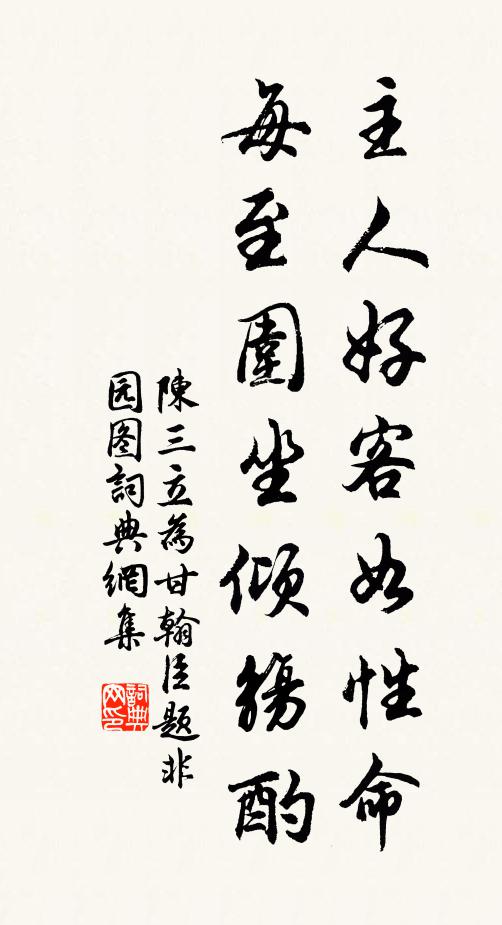 主人好客如性命
每至圍坐傾觴酌
陳三立為甘翰臣题非
园图詞典網集
詞典网印